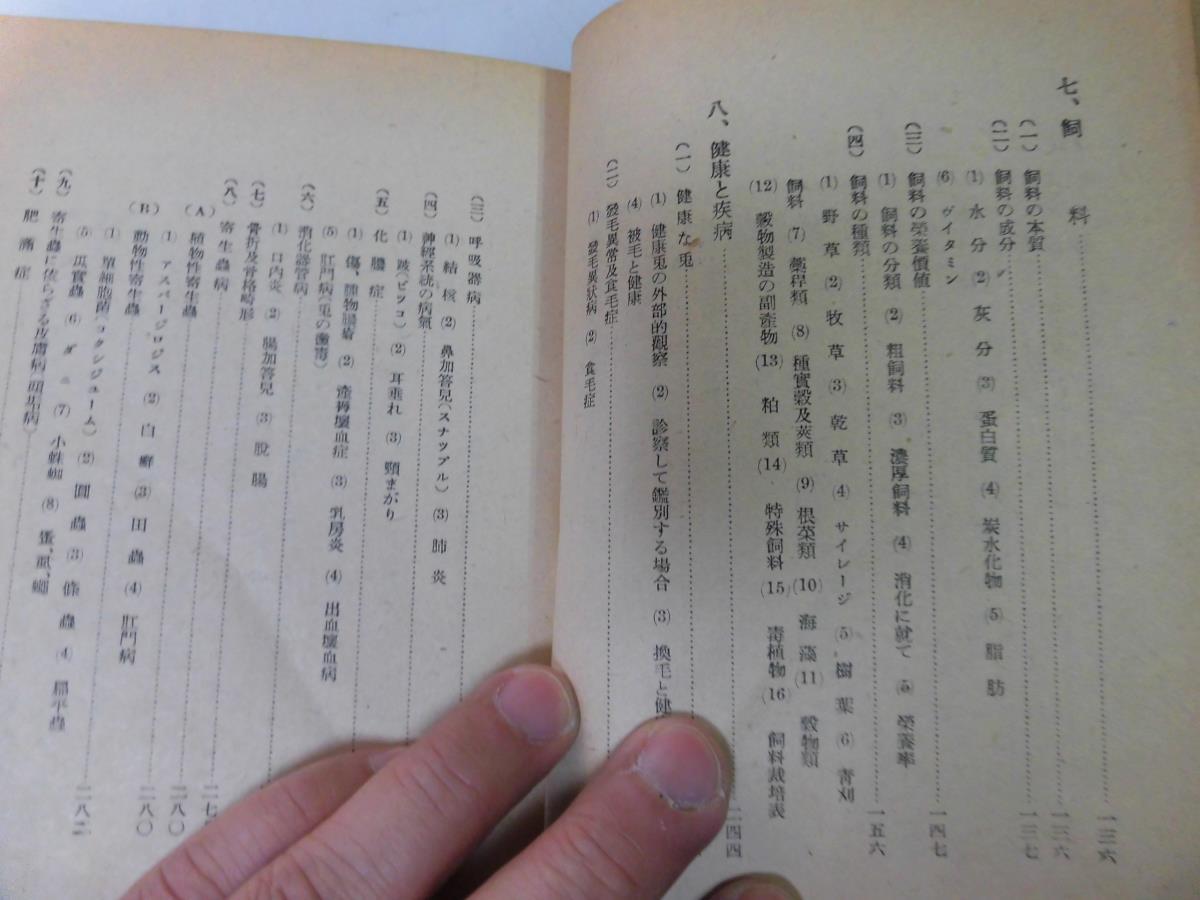 七、飼料……一三六
（一）飼料の本質……一三六
（二）飼料の成分……一三七
(1) 水分 (2) 灰分 (3) 蛋白質 (4) 炭水化物 (5) 脂肪
(6) ヴイタミン
（三）飼料の榮養價値……一四七
(1) 飼料の分類 (2) 粗飼料 (3) 濃厚飼料 (4) 消化に就て (5) 榮養率
（四）飼料の種類……一五六
(1) 野草 (2) 牧草 (3) 乾草 (4) サイレージ (5) 樹葉 (6) 靑刈
飼料 (7) 藁稈類 (8) 種實穀及莢類 (9) 根菜類 (10) 海藻 (11) 穀物類
(12) 穀物製造の副產物 (13) 粕類 (14) 特殊飼料 (15) 毒植物 (16) 飼料栽培表
八、健康と疾病……二四四
（一）健康な兎……
(1) 健康兎の外部的觀察 (2) 診察して鑑別する場合 (3) 換毛と健
(4) 被毛と健康
（二）發毛異常及食毛症……
(1) 發毛異狀病 (2) 食毛症
（三）呼吸器病……
(1) 結核 (2) 鼻加答兒(スナツフル) (3) 肺炎
（四）神經系統の病氣……
(1) 跛(ビツコ) (2) 耳垂れ (3) 頸まがり
（五）化膿症……
(1) 傷、腫物膿瘍 (2) 產褥壞血症 (3) 乳房炎 (4) 出血壞血病
(5) 肛門病(兎の黴毒)
（六）消化器管病……
(1) 口內炎 (2) 腸加答兒 (3) 脫腸
（七）骨折及骨格畸形……
（八）寄生蟲病……二七
（A）植物性寄生蟲……二八〇
(1) アスパージロジス (2) 白癬 (3) 田蟲 (4) 肛門病
（B）動物性寄生蟲……二八〇
(1) 單細胞菌(コクシジユーム) (2) 圓蟲 (3) 條蟲 (4) 扁平蟲
(5) 瓜實蟲 (6) ダニ (7) 小蛛蜘 (8) 蚤、虱、蠅
（九）寄生蟲に依らざる皮膚病(頭垢病)……二八二
（十）肥滿症……